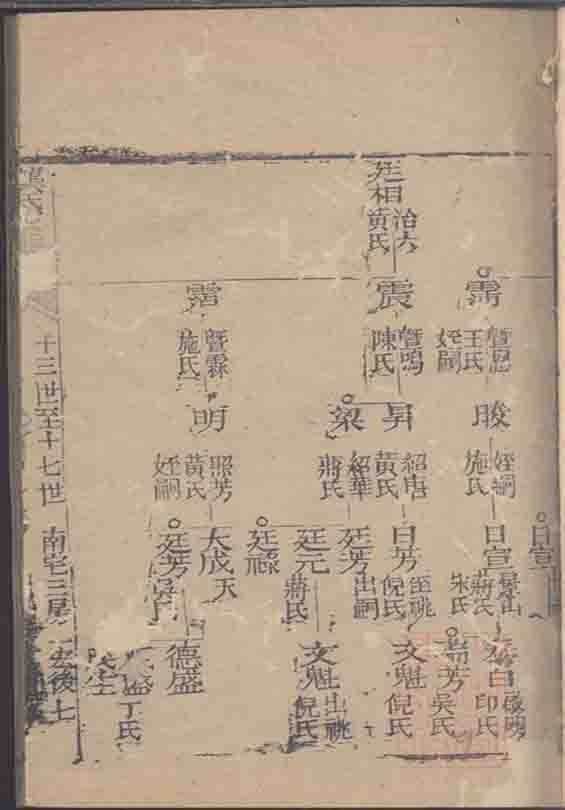 廷相
治六
黄氏
需
暨恩
王氏
姪嗣
震
暨鳴
陳氏
霑
暨霖
施氏
姪嗣
施氏
昇
紹唐
黄氏
梁
紹華
蔣氏
明
照芳
黄氏
姪嗣
日宣
日宣
蔣氏
朱氏
日芳
至祧
倪氏
廷芳
出嗣
廷元
蔣氏
廷祿
大成
天
廷芳
啟明
印氏
芳
吳氏
文魁
倪氏
文魁
出祧
倪氏
德盛
丁氏
十三世至十七世
南宅三房